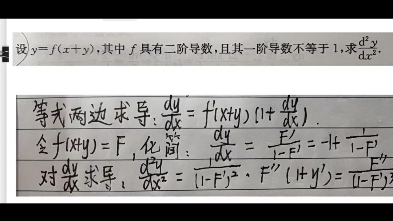 设 y=f(x+y),其中 f 具有二阶导数,且其一阶导数不等于 1,求 d²y/dx².
等式两边求导: dy/dx = f'(x+y)(1+ dy/dx).
令 f(x+y)=F, 化简: dy/dx = F'/(1-F') = -1+ 1/(1-F')
对 dy/dx 求导: d²y/dx² = 1/(1-F')² · F''(1+y') = F''/(1-F')³